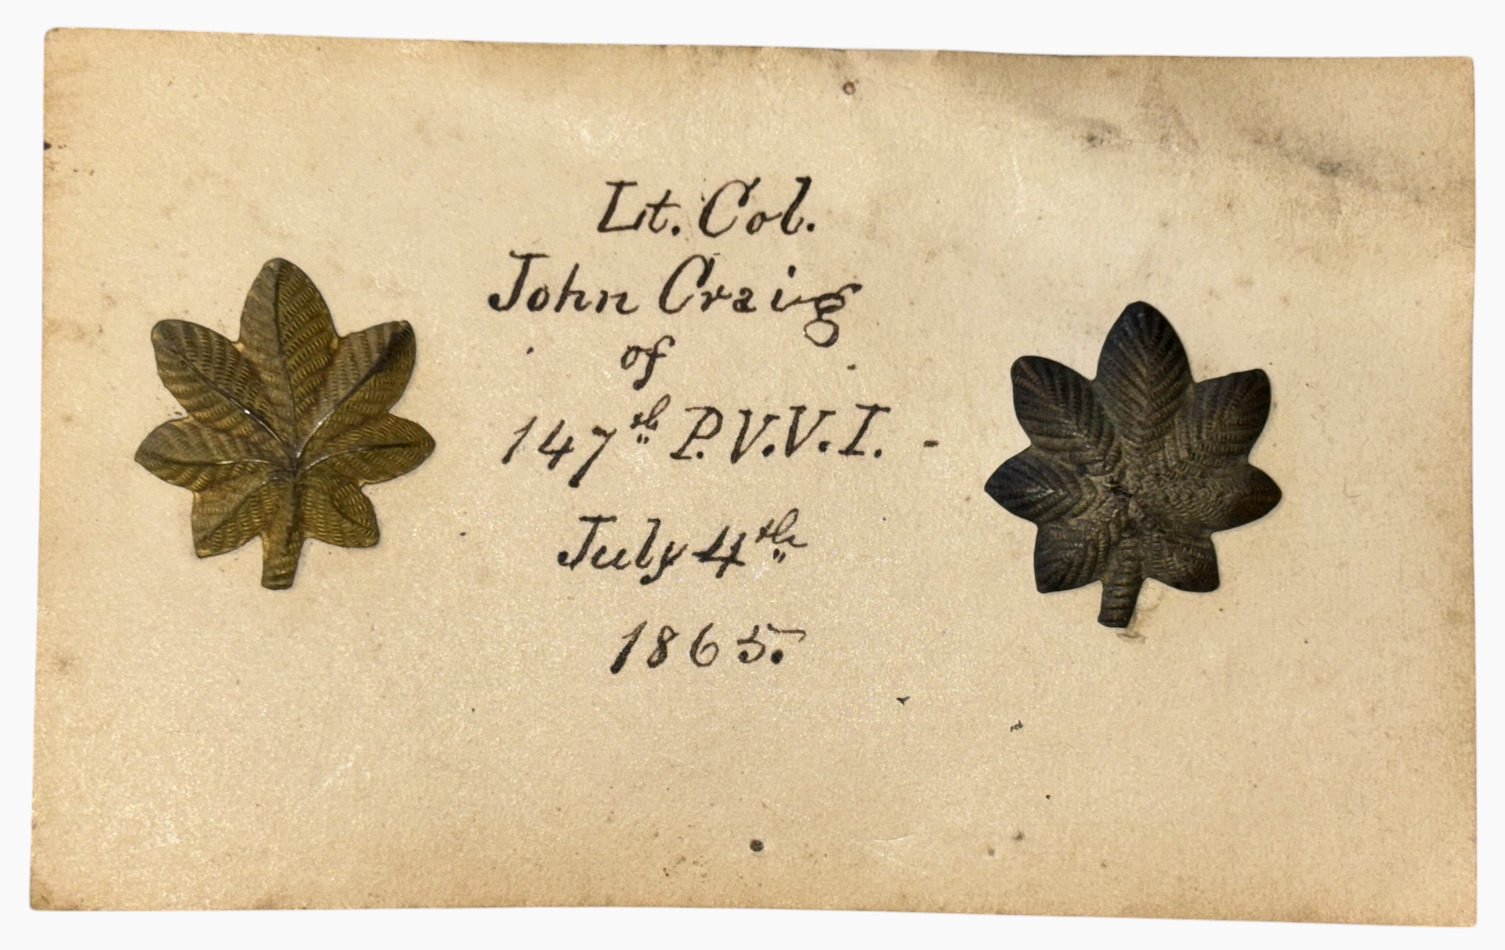 Lt. Col.
John Craig
of
147th P.V.V.I. -
July 4th
1865.